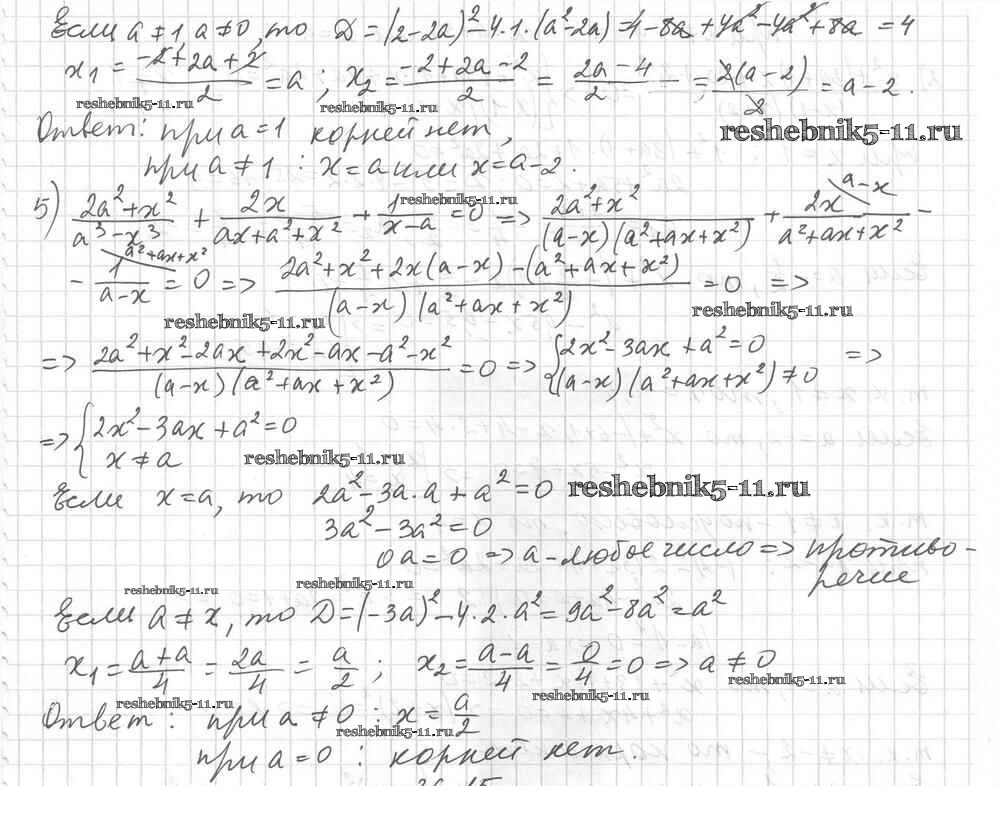 Если a ≠ 1 a ≠ 0, то D = (2-2a)² - 4·1·(a²-2a) = 4 - 8a + 4a² - 4a² + 8a = 4
x₁ = (-2+2a+2)/2 = a ; x₂ = (-2+2a-2)/2 = (2a-4)/2 = ; 2(a-2)/2 = a-2 .
reshebnik5-11.ru reshebnik5-11.ru
Ответ: при a = 1 корней нет, reshebnik5-11.ru
при a ≠ 1 : x = a или x = a-2 .
reshebnik5-11.ru
5) (2a²+x²)/(a³-x³) + 2x/(ax+a²+x²) + 1/(x-a) = 0 => (2a²+x²)/((a-x)(a²+ax+x²)) + 2x/(a²+ax+x²) a-x -
- 1/(a-x) a²+ax+x² = 0 => (2a²+x²+2x(a-x)-(a²+ax+x²))/((a-x)(a²+ax+x²)) = 0, =>
reshebnik5-11.ru reshebnik5-11.ru
=> (2a²+x²-2ax+2x²-ax-a²-x²)/((a-x)(a²+ax+x²)) = 0 => { 2x²-3ax+a²=0 (a-x)(a²+ax+x²) ≠ 0 =>
=> { 2x²-3ax+a²=0
x ≠ a reshebnik5-11.ru
Если x = a, то 2a²-3a·a+a²=0 reshebnik5-11.ru
3a²-3a²=0
0a=0 => a - любое число => противо-
речие
reshebnik5-11.ru reshebnik5-11.ru
Если a ≠ x, то D = (-3a)² - 4·2·a² = 9a²-8a² = a²
x₁ = (a+a)/4 = 2a/4 = a/2 ; x₂ = (a-a)/4 = 0/4 = 0 => a ≠ 0
reshebnik5-11.ru reshebnik5-11.ru reshebnik5-11.ru
Ответ : при a ≠ 0 : x = a/2
reshebnik5-11.ru
при a = 0 : корней нет.